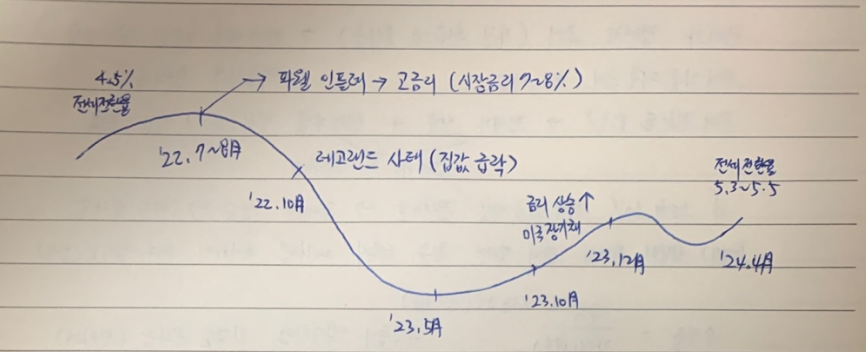 4.5%
전세전환율
→ 파월 인플레 → 고금리 (시장금리 7~8%)
'22. 7~8月
레고랜드 사태 (집값 급락)
'22.10月
전세전환율
5.3~5.5
금리 상승 ↑
미국 장기채
'23.12月
'24.4月
'23.10月
'23.5月